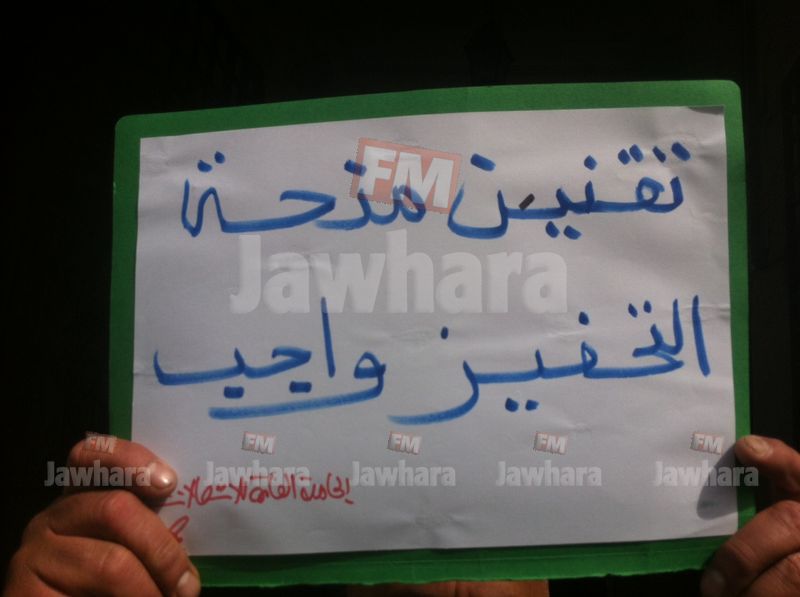 تقنين منحة
FM
Jawhara
التحفيز واجب
FM FM FM FM FM
Jawhara Jawhara Jawhara Jawhara Jawhara
الجامعة العامة للاتصالات